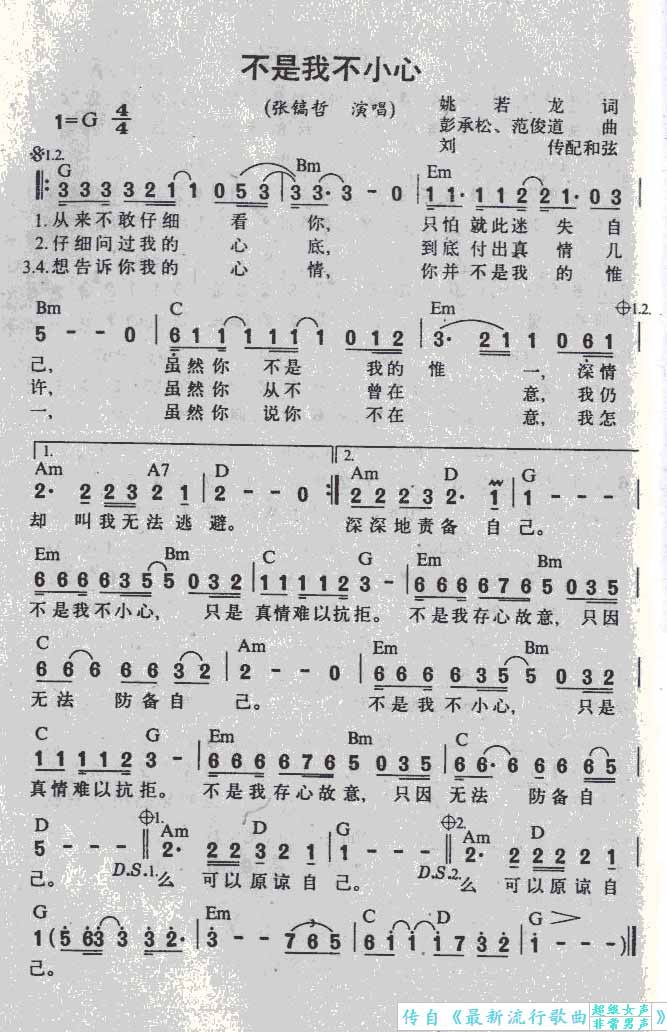 不是我不小心
(张镐哲 演唱)
姚若龙 词
彭承松、范俊道 曲
刘 传配和弦
1=G 4/4
1.2.
G Bm Em
3 3 3 3 2 1 1 0 5 3 | 3 3· 3 - 0 | 1 1· 1 1 2 2 1· 0 3 |
1.从来不敢仔细 看 你, 只怕就此迷 失 自
2.仔细问过我的 心 底, 到底付出真 情 几
3.4.想告诉你我的 心 情, 你并不是我 的 惟
Bm C Em 1.2.
5 - - 0 | 6 1 1 1 1 1 1 0 1 2 | 3· 2 1 1 0 6 1 |
己, 虽然你 不是 我的 惟 一, 深情
许, 虽然你 从不 曾在 意, 我仍
一, 虽然你 说你 不在 意, 我怎
1. 2.
Am A7 D Am D G
2· 2 2 3 2 1 | 2 - - 0 :‖ 2 2 2 3 2· 1 | 1 - - -
却 叫我无法 逃 避。 深深地责备 自 己。
Em Bm C G Em Bm
6 6 6 6 3 5 5 0 3 2 | 1 1 1 1 2 3 - | 6 6 6 6 7 6 5 0 3 5 |
不是我不小心, 只是 真情难以抗拒。 不是我存心故意, 只因
C Am Em Bm
6 6 6 6 6 3 2 | 2 - - 0 | 6 6 6 6 3 5 5 0 3 2 |
无法 防备自 己。 不是我不小心, 只是
C G Em Bm C
1 1 1 1 2 3 - | 6 6 6 6 7 6 5 0 3 5 | 6 6· 6 6 6 6 5 |
真情难以抗拒。 不是我存心故意, 只因 无法 防备自
D 1. Am D G 2. Am D
5 - - - ‖ 2· 2 2 3 2 1 | 1 - - - ‖ 2· 2 2 2 2 1 |
己。 D.S.1. 么 可以原谅自 己。 D.S.2. 么 可以原谅自
G Em C D G
1 ( 5 6 3 3 3 3 2· | 3 - - 7 6 5 | 6 1 1 1 7 3 | 1 - - - ) ‖
己。
传自《最新流行歌曲 超级女声 非常男声》